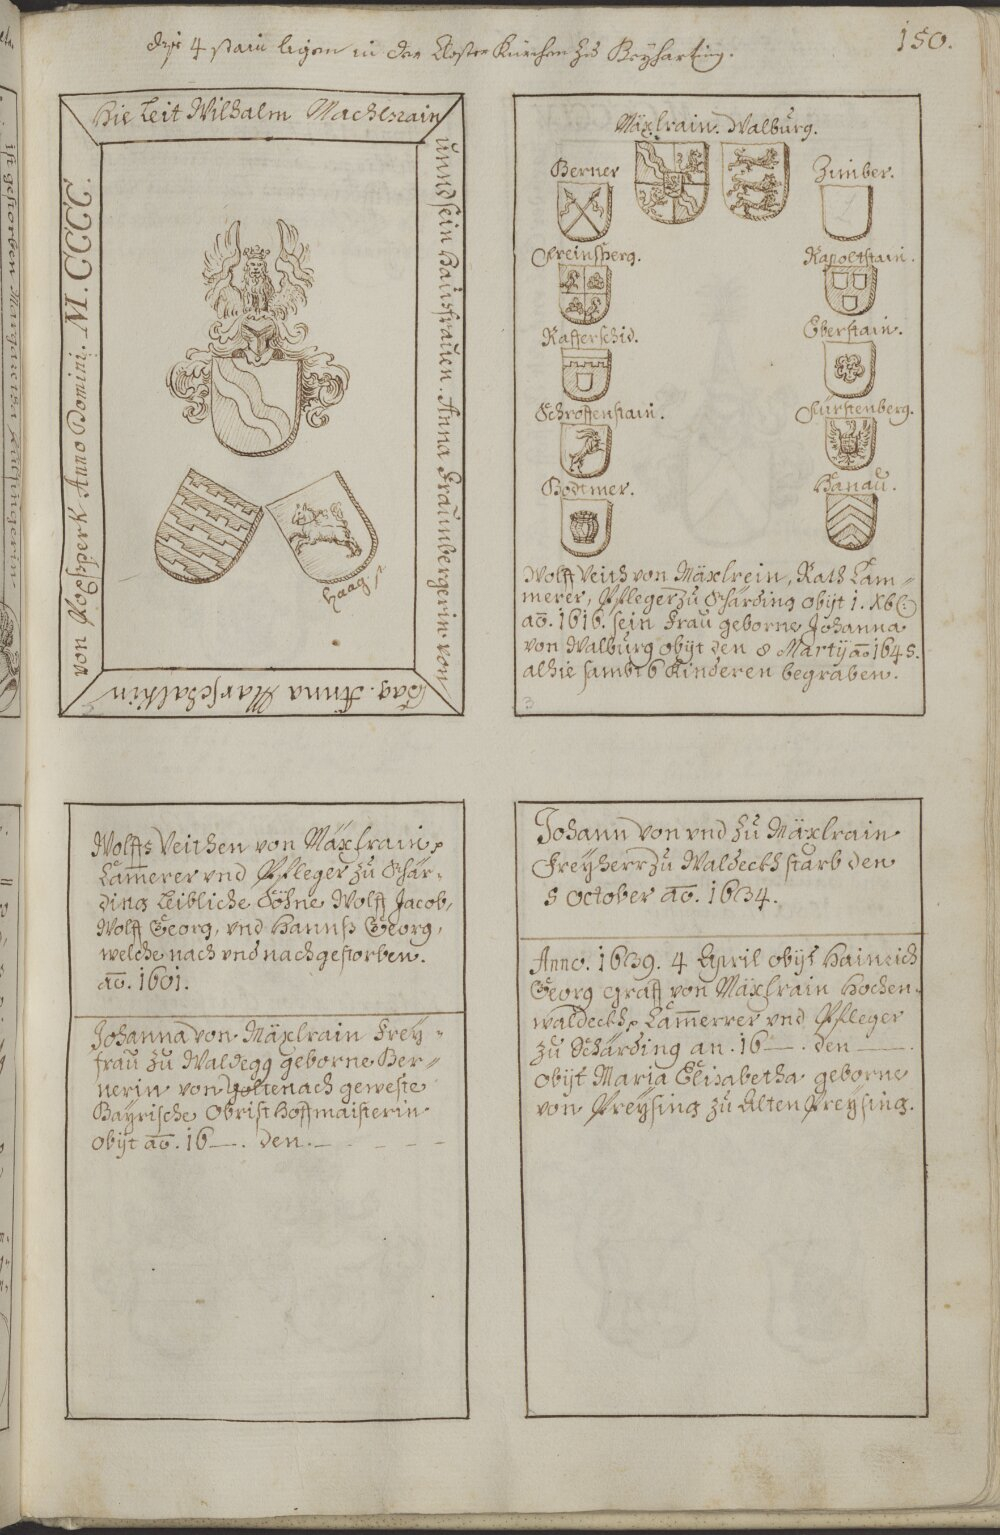 150.
Dise 4 stain ligen in der Closter Kürchen zu Beyharting.
Hie Leit Wilhalm Machlrain
unnd sein Hausfrauen. Anna Fraunbergerin von
Haag. Anna Marschalkin
von Anno Domini. M.CCCC.
Haag
Mäxlrain. Walburg.
Berner
Zimber.
Freinsperg.
Rapoltstain.
Kafferschid.
Eberstain.
Schroffenstain.
Fürstenberg.
Bodmer.
Hanau.
Wolff Veith von Mäxlrein, Rath Cam=
merer, Pfleger zu Schärding obijt 1. Xb
aō. 1616. sein Frau geborne Johanna
von Walburg obijt den 8 Martij aō 1645.
alhie sambt 6 Kinderen begraben.
3
Wolffs Veithen von Mäxlrain
Camerer vnd Pfleger zu Schär=
ding Leibliche Söhne Wolff Jacob,
Wolff Georg, vnd Hannß Georg,
welche nach vnd nach gestorben.
aō. 1601.
Johanna von Mäxlrain Frey=
frau zu Waldegg geborne Ber=
nerin von Gottenach geweste
Bayrische Obrist Hoffmaisterin
obijt aō. 16__. den.
Johann von vnd zu Mäxlrain
Freyherr zu Waldeckh starb den
5 October aō. 1634.
Anno. 1639. 4 April obijt Hainrich
Georg Graff von Mäxlrain Hochen=
waldeckh Cam̄errer vnd Pfleger
zu Schärding an. 16__. den ____.
obijt Maria Elisabetha geborne
von Preysing zu Alten Preysing.
ist gestorben Margaretha